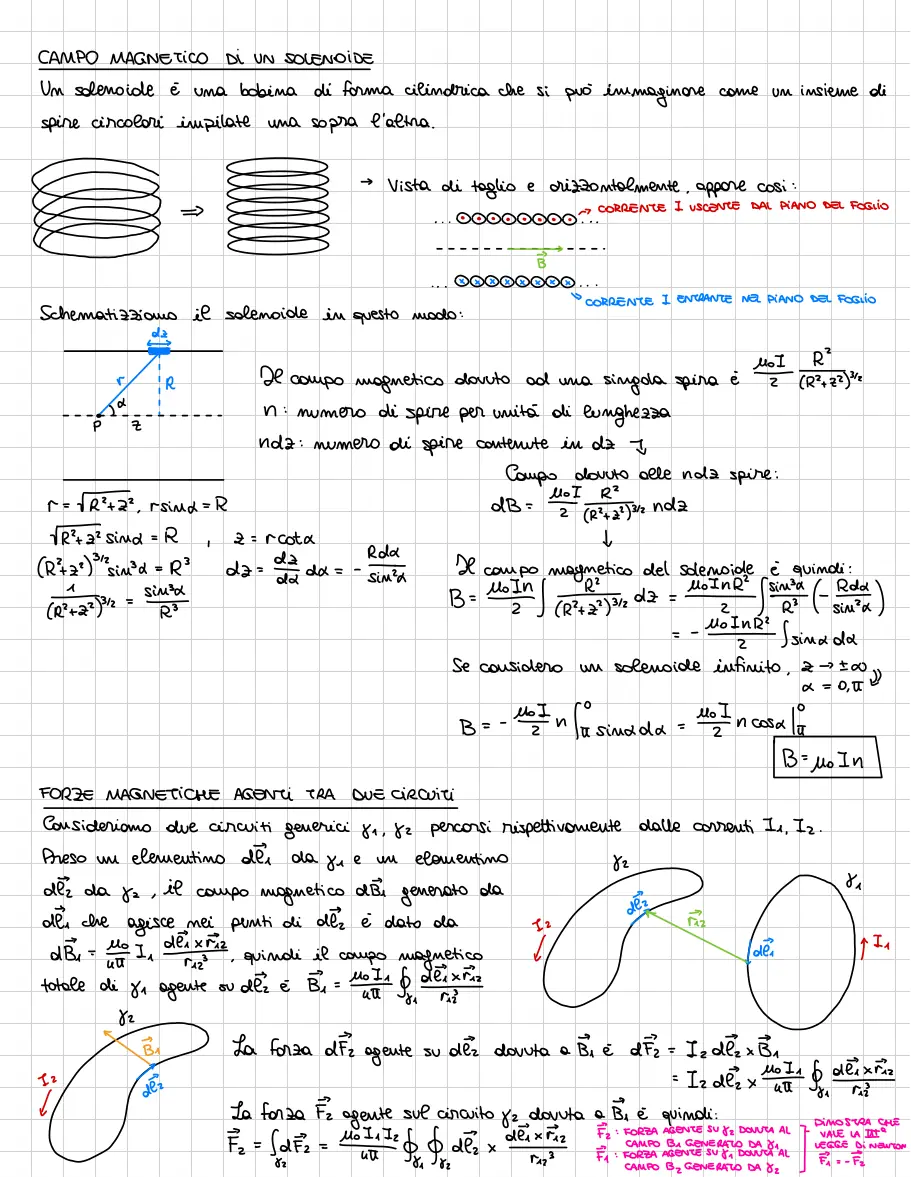 CAMPO MAGNETICO DI UN SOLENOIDE
Un solenoide è una bobina di forma cilindrica che si può immaginare come un insieme di
spire circolari impilate una sopra l'altra.
⇒
→ Vista di taglio e orizzontalmente, appare così:
... → CORRENTE I USCENTE DAL PIANO DEL FOGLIO
B⃗
... CORRENTE I ENTRANTE NEL PIANO DEL FOGLIO
Schematizziamo il solenoide in questo modo:
dz
r R
α
P z
Il campo magnetico dovuto ad una singola spira è μ₀I/2 R²/(R²+z²)^3/2
n: numero di spire per unità di lunghezza
ndz: numero di spire contenute in dz ↴
Campo dovuto alle ndz spire:
dB = μ₀I/2 R²/(R²+z²)^3/2 ndz
↓
r = √R²+z², r sinα = R
√R²+z² sinα = R , z = r cotα
(R²+z²)^3/2 sin³α = R³ dz = dz/dα dα = - Rdα/sin²α
1/(R²+z²)^3/2 = sin³α/R³
Il campo magnetico del solenoide è quindi:
B = μ₀In/2 ∫ R²/(R²+z²)^3/2 dz = μ₀InR²/2 ∫ sin³α/R³ (- Rdα/sin²α)
= - μ₀InR²/2 ∫ sinα dα
Se considero un solenoide infinito, z → ±∞
α = 0, π
B = - μ₀I/2 n ∫_π^0 sinα dα = μ₀I/2 n cosα |_π^0
B = μ₀In
FORZE MAGNETICHE AGENTI TRA DUE CIRCUITI
Consideriamo due circuiti generici γ₁, γ₂ percorsi rispettivamente dalle correnti I₁, I₂.
Preso un elementino dl⃗₁ da γ₁ e un elementino
dl⃗₂ da γ₂, il campo magnetico dB⃗₁ generato da
dl⃗₁ che agisce nei punti di dl⃗₂ è dato da
dB⃗₁ = μ₀/4π I₁ dl⃗₁ × r⃗₁₂/r₁₂³, quindi il campo magnetico
totale di γ₁ agente su dl⃗₂ è B⃗₁ = μ₀I₁/4π ∮_γ₁ dl⃗₁ × r⃗₁₂/r₁₂³
γ₂ γ₁
dl⃗₂ r⃗₁₂
I₂ dl⃗₁ I₁
γ₂
B⃗₁
I₂ dl⃗₂
La forza dF⃗₂ agente su dl⃗₂ dovuta a B⃗₁ è dF⃗₂ = I₂ dl⃗₂ × B⃗₁
= I₂ dl⃗₂ × μ₀I₁/4π ∮_γ₁ dl⃗₁ × r⃗₁₂/r₁₂³
La forza F⃗₂ agente sul circuito γ₂ dovuta a B⃗₁ è quindi:
F⃗₂ = ∫_γ₂ dF⃗₂ = μ₀I₁I₂/4π ∮_γ₁ ∮_γ₂ dl⃗₂ × dl⃗₁ × r⃗₁₂/r₁₂³
F⃗₂: FORZA AGENTE SU γ₂ DOVUTA AL
CAMPO B₁ GENERATO DA γ₁
F⃗₁: FORZA AGENTE SU γ₁ DOVUTA AL
CAMPO B₂ GENERATO DA γ₂
DIMOSTRA CHE
VALE LA IIIª
LEGGE DI NEWTON
F⃗₁ = -F⃗₂